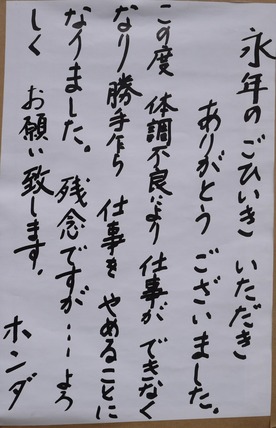 永年のごひいきいただき
ありがとうございました。
この度 体調不良により 仕事ができなく
なり勝手乍ら 仕事をやめることに
なりました。残念ですが…よろ
しく お願い致します。
ホンダ